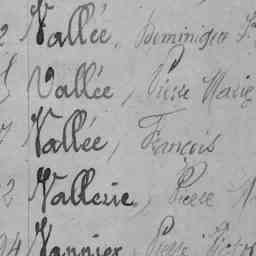 2 Vallée, Dominique F
Vallée, Pierre Marie
7 Vallée, François
2 Vallerie, Pierre
94 Vannier, Pierre Victor